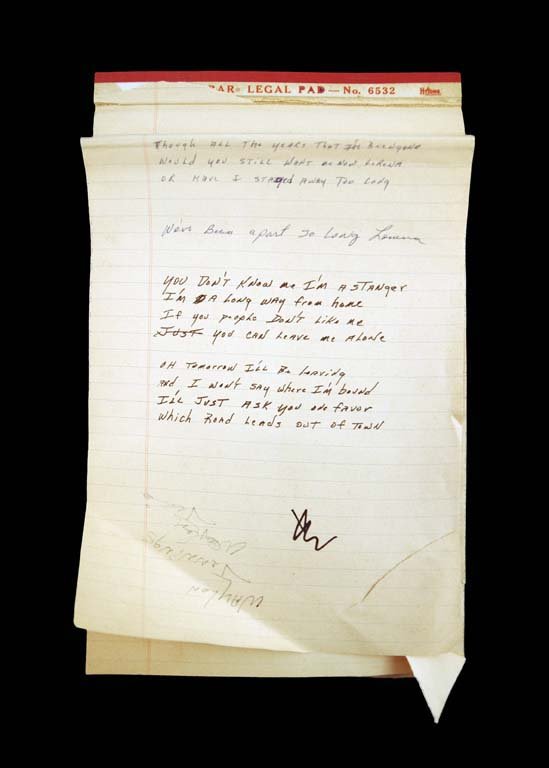 BAR LEGAL PAD — No. 6532
Though ALL The years That I've Been gone
Would you still want me now Lorena
or Have I stayed away Too Long
We've Been apart so long Lorena
You Don't Know me I'm A STANger
I'm A Long way from home
If you people Don't Like me
JUST you can Leave me Alone
OH Tomorrow I'll Be Leaving
And I won't say where I'm bound
I'll JUST ASK you one favor
which Road Leads out of Town
Waylon
Jennings